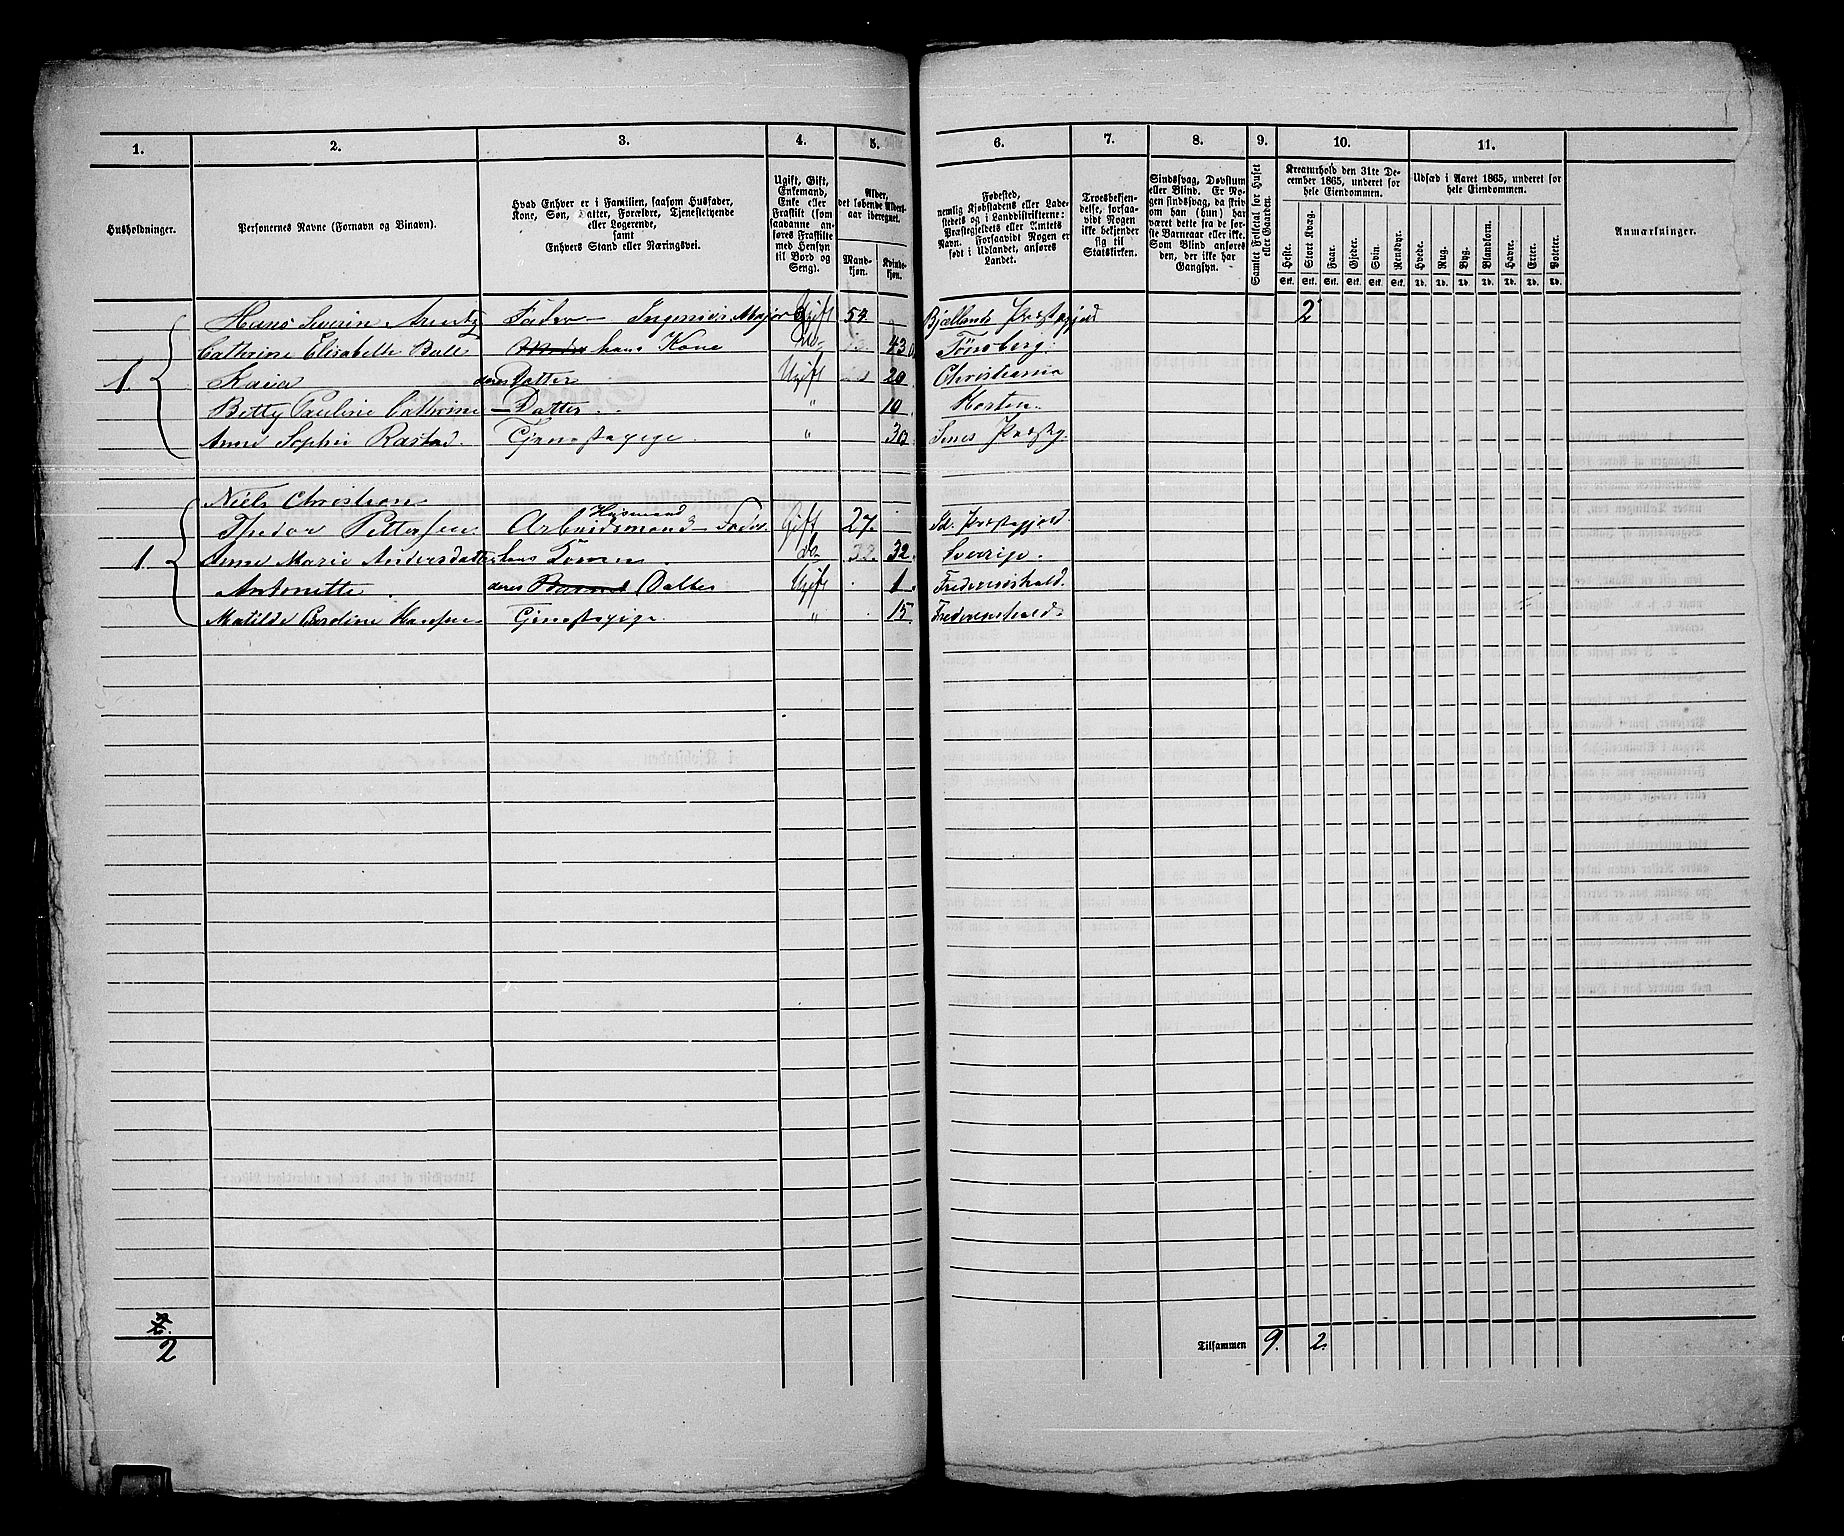 1. 2. 3. 4. 5. 6. 7. 8. 9. 10. 11.
Husholdninger.
Personernes Navne (Fornavn og Binavn).
Hvad Enhver er i Familien, saasom Husfader,
Kone, Søn, Datter, Forældre, Tjenestetyende
eller Logerende,
samt
Enhvers Stand eller Næringsvei.
Ugift, Gift,
Enkemand,
Enke eller
Fraskilt (som
saadanne an-
føres Fraskilte
med Hensyn
til Bord og
Seng).
Alder,
det løbende Alders-
aar iberegnet.
Mand-
kjøn.
Kvinde-
kjøn.
Fødested,
nemlig Kjøbstadens eller Lade-
stedets og i Landdistrikterne:
Præstegjeldets eller Amtets
Navn. Forsaavidt Nogen er
født i Udlandet, anføres
Landet.
Troesbekjen-
delse, forsaa-
vidt Nogen
ikke bekjender
sig til
Statskirken.
Sindssvag, Døvstum
eller Blind. Er No-
gen sindssvag, da skriv
om han (hun) har
været dette fra de før-
ste Barneaar eller ikke.
Som Blind anføres
den, der ikke har
Gangsyn.
Samlet Folketal for Huset
eller Gaarden.
Kreaturhold den 31te De-
cember 1865, underet for
hele Eiendommen.
Heste. Stort Kvæg. Faar. Gjeder. Svin. Rensdyr.
Stk. Stk. Stk. Stk. Stk. Stk.
Udsæd i Aaret 1865, underet for
hele Eiendommen.
Hvede. Rug. Byg. Blandkorn. Havre. Erter. Poteter.
Td. Td. Td. Td. Td. Td. Td.
Anmærkninger.
Hans Severin Arentz Fader – Ingeniør Major Gift 54 Bjællands Præstegjeld 2
Cathrine Elisabeth Bull hans Kone do 43 Tønsberg.
1. Kaia deres Datter Ugift 20 Christiania
Betty Pauline Cathrine – Datter „ 10 Horten.
Anne Sophie Rastad. Tjenestepige. „ 30 Præstg.
Niels Christian
Huusmand
Thedor Pettersen Arbeidsmand – Fader Gift 27 Id. Præstegjeld
1. Anne Marie Andersdatter hans Kone do 32 Sverige.
Antonette deres Datter Ugift 1 Frederikshald.
Matilde Caroline Hansen Tjenestepige „ 15 Frederikshald
2
Tilsammen 9. 2